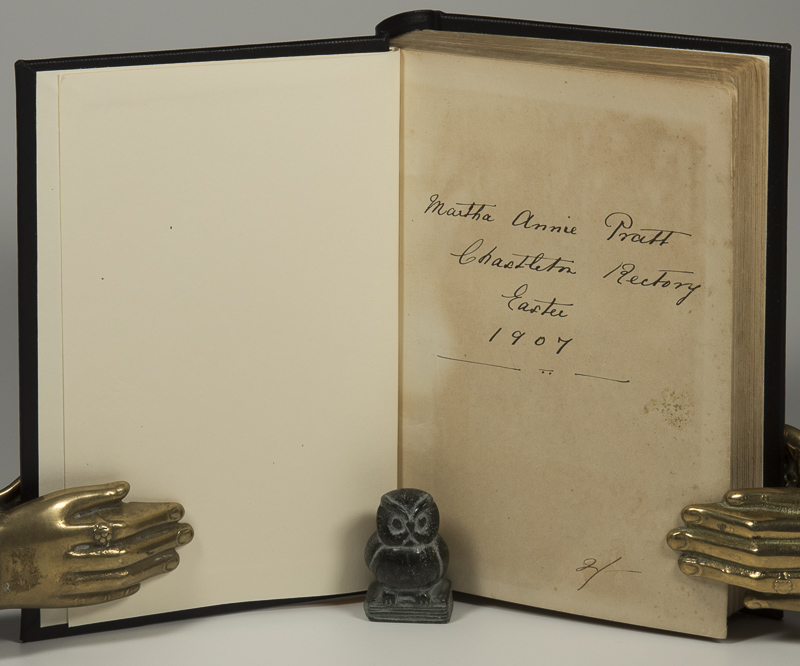 Martha Annie Pratt
Chastleton Rectory
Easter
1907
2/-